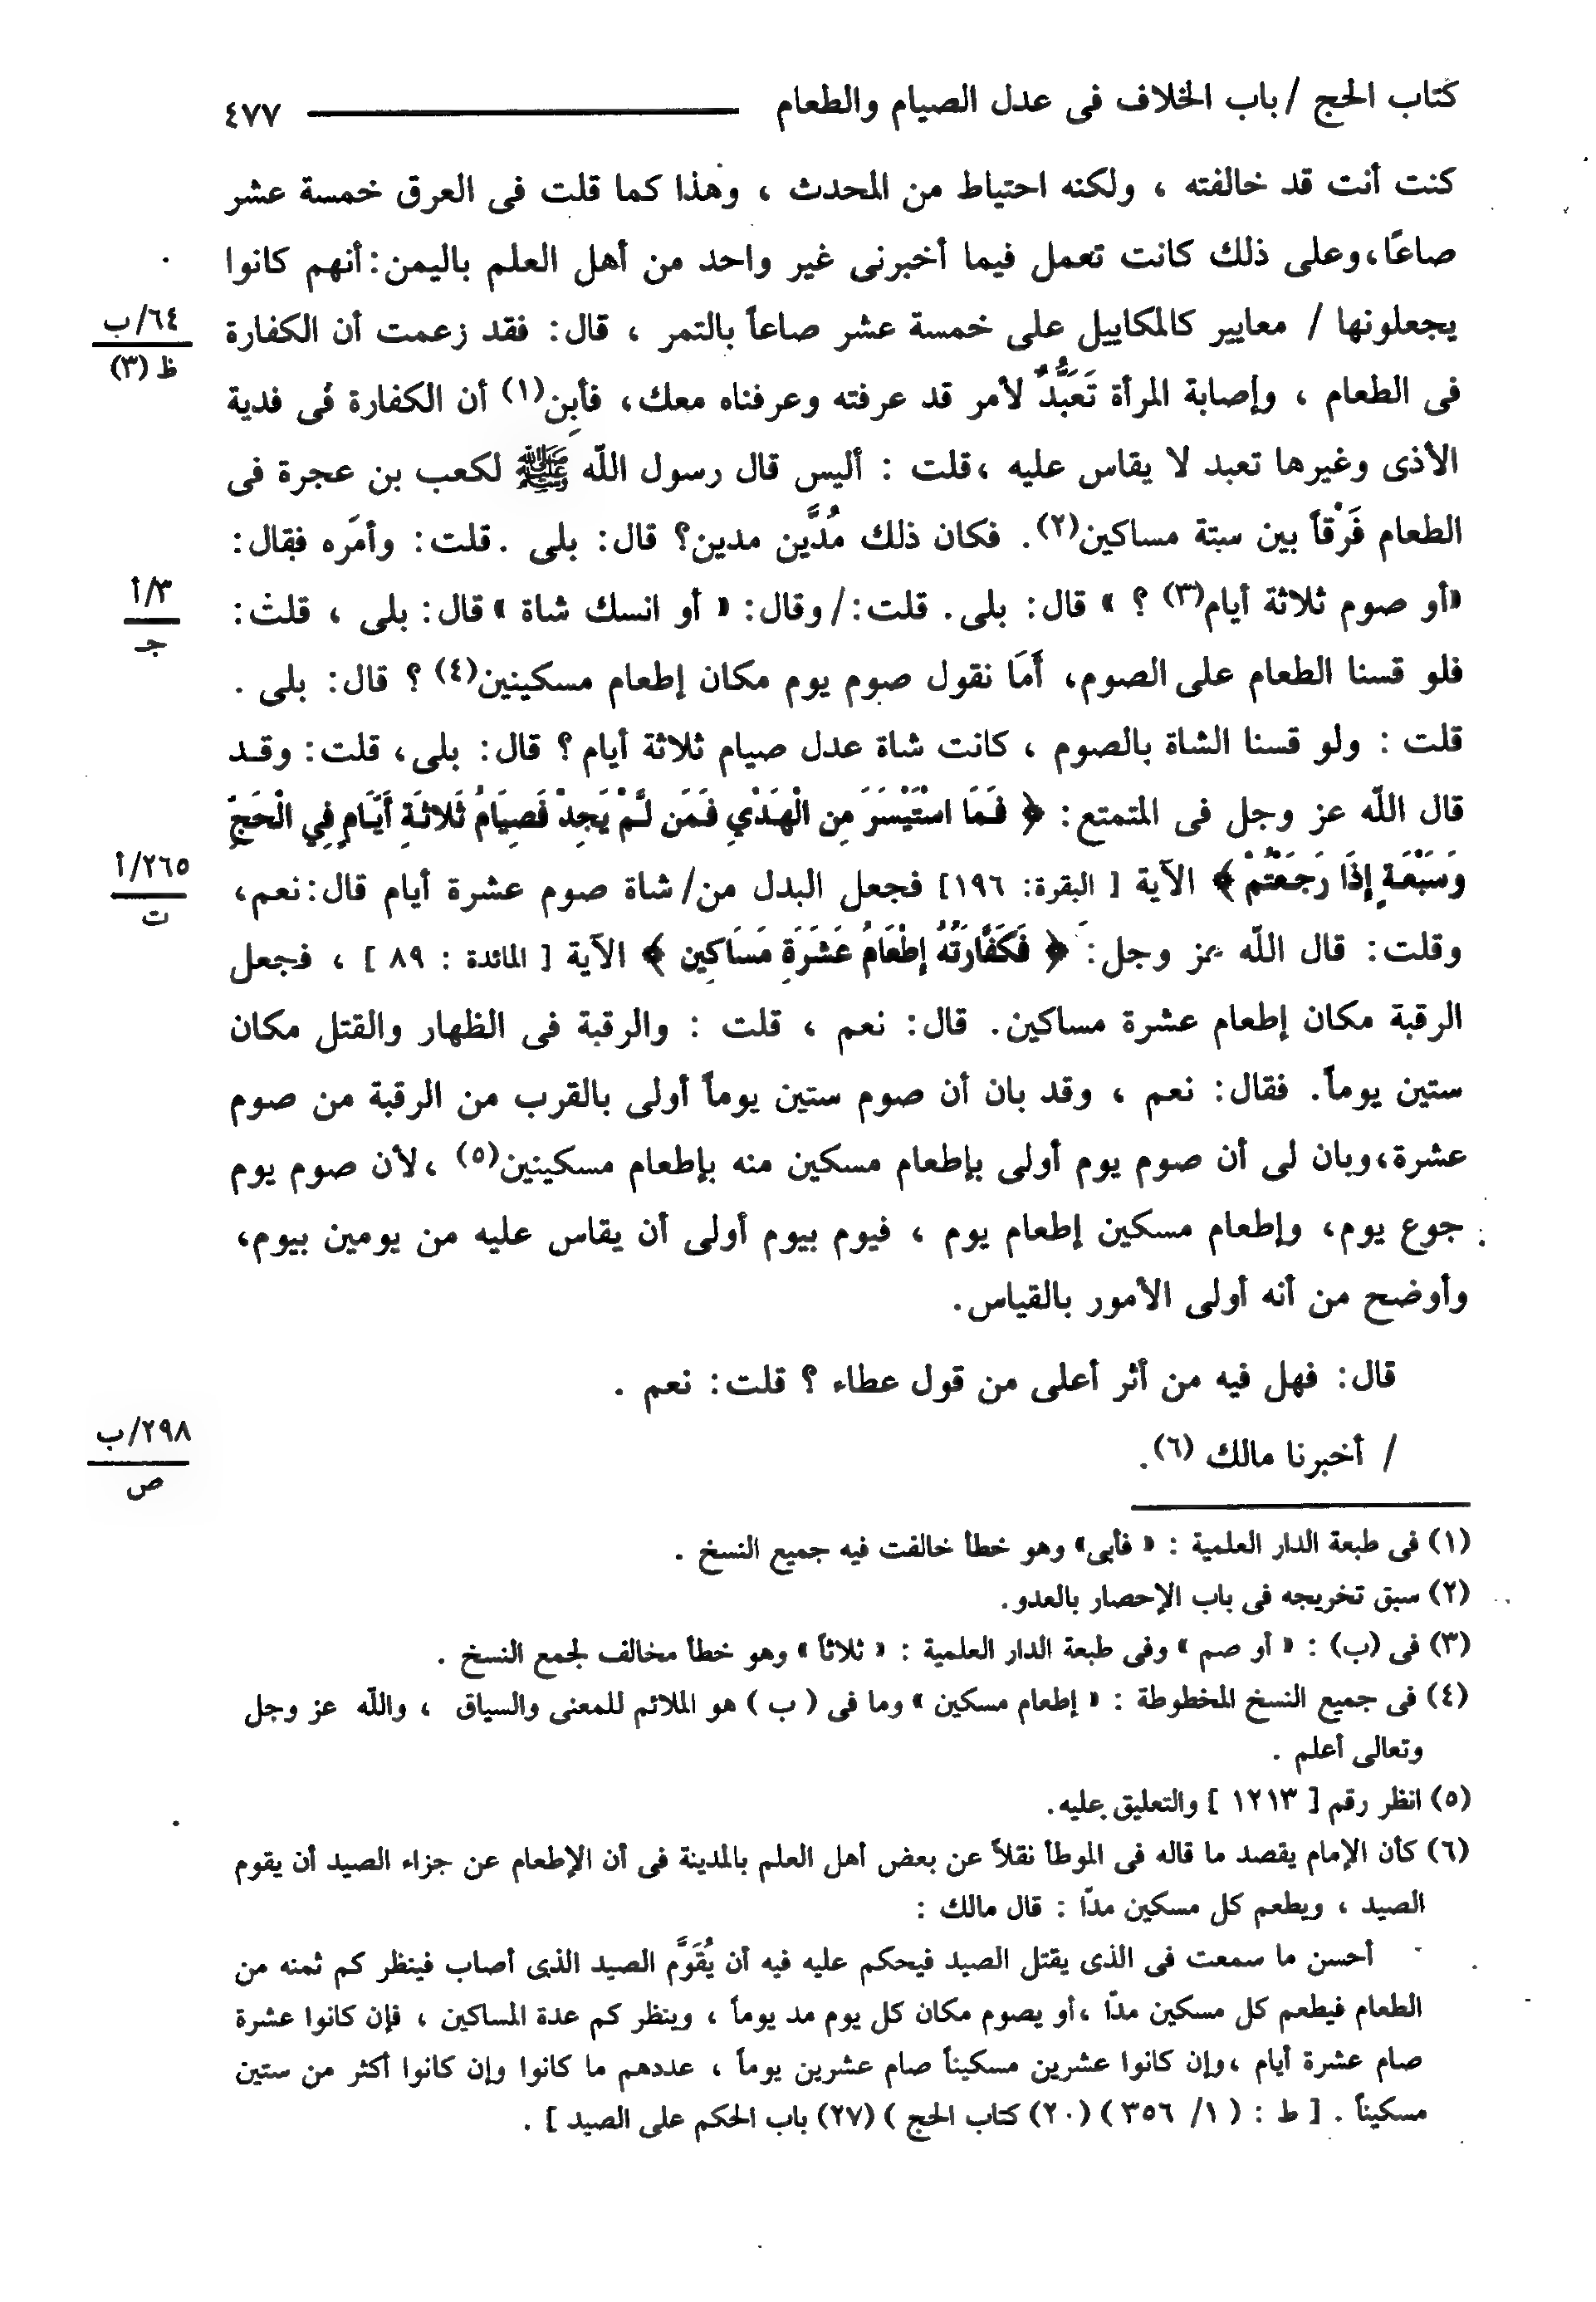 كتاب الحج / باب الخلاف فى عدل الصيام والطعام ٤٧٧
كنت أنت قد خالفته ، ولكنه احتياط من المحدث ، وهذا كما قلت فى العرق خمسة عشر
صاعًا،وعلى ذلك كانت تعمل فيما أخبرنى غير واحد من أهل العلم باليمن:أنهم كانوا
يجعلونها / معايير كالمكاييل على خمسة عشر صاعاً بالتمر ، قال: فقد زعمت أن الكفارة
٦٤/ب
ظ (٣)
فى الطعام ، وإصابة المرأة تَعَبُّدٌ لأمر قد عرفته وعرفناه معك، فأبِن(١) أن الكفارة فى فدية
الأذى وغيرها تعبد لا يقاس عليه ،قلت : أليس قال رسول اللّه ﷺ لكعب بن عجرة فى
الطعام فَرْقاً بين ستة مساكين(٢). فكان ذلك مُدَّين مدين؟ قال: بلى .قلت: وأمَره فقال:
«أو صوم ثلاثة أيام(٣) ؟ » قال: بلى. قلت:/ وقال: « أو انسك شاة » قال: بلى ، قلت:
٣/أ
جـ
فلو قسنا الطعام على الصوم، أَمَا نقول صوم يوم مكان إطعام مسكينين(٤) ؟ قال: بلى .
قلت : ولو قسنا الشاة بالصوم ، كانت شاة عدل صيام ثلاثة أيام ؟ قال: بلى، قلت: وقـد
قال اللّه عز وجل فى المتمتع: ﴿ فَمَا اسْتَيْسَرَ مِنَ الْهَدْيِ فَمَن لَّمْ يَجِدْ فَصِيَامُ ثَلاثَةِ أَيَّامٍ فِي الْحَجِّ
وَسَبْعَةٍ إِذَا رَجَعْتُمْ ﴾ الآية [ البقرة: ١٩٦] فجعل البدل من/ شاة صوم عشرة أيام قال:نعم،
٢٦٥/أ
ت
وقلت: قال اللّه عز وجل: ﴿ فَكَفَّارَتُهُ إِطْعَامُ عَشَرَةِ مَسَاكِينَ ﴾ الآية [ المائدة : ٨٩ ] ، فجعل
الرقبة مكان إطعام عشرة مساكين. قال: نعم ، قلت : والرقبة فى الظهار والقتل مكان
ستين يوماً. فقال: نعم ، وقد بان أن صوم ستين يوماً أولى بالقرب من الرقبة من صوم
عشرة،وبان لى أن صوم يوم أولى بإطعام مسكين منه بإطعام مسكينين(٥) ،لأن صوم يوم
جوع يوم، وإطعام مسكين إطعام يوم ، فيوم بيوم أولى أن يقاس عليه من يومين بيوم،
وأوضح من أنه أولى الأمور بالقياس.
قال: فهل فيه من أثر أعلى من قول عطاء ؟ قلت: نعم .
/ أخبرنا مالك (٦).
٢٩٨/ب
ص
(١) فى طبعة الدار العلمية : « فأبى» وهو خطأ خالفت فيه جميع النسخ .
(٢) سبق تخريجه فى باب الإحصار بالعدو.
(٣) فى (ب) : « أو صم » وفى طبعة الدار العلمية : « ثلاثاً » وهو خطأ مخالف لجمع النسخ .
(٤) فى جميع النسخ المخطوطة : « إطعام مسكين » وما فى ( ب ) هو الملائم للمعنى والسياق ، واللّه عز وجل
وتعالى أعلم .
(٥) انظر رقم [ ١٢١٣ ] والتعليق عليه.
(٦) كأن الإمام يقصد ما قاله فى الموطأ نقلاً عن بعض أهل العلم بالمدينة فى أن الإطعام عن جزاء الصيد أن يقوم
الصيد ، ويطعم كل مسكين مدًا : قال مالك :
أحسن ما سمعت فى الذى يقتل الصيد فيحكم عليه فيه أن يُقَوَّم الصيد الذى أصاب فينظر كم ثمنه من
الطعام فيطعم كل مسكين مدًا ،أو يصوم مكان كل يوم مد يوماً ، وينظر كم عدة المساكين ، فإن كانوا عشرة
صام عشرة أيام ،وإن كانوا عشرين مسكيناً صام عشرين يوماً ، عددهم ما كانوا وإن كانوا أكثر من ستين
مسكيناً . [ ط : ( ١/ ٣٥٦ ) (٢٠) كتاب الحج ) (٢٧) باب الحكم على الصيد ] .